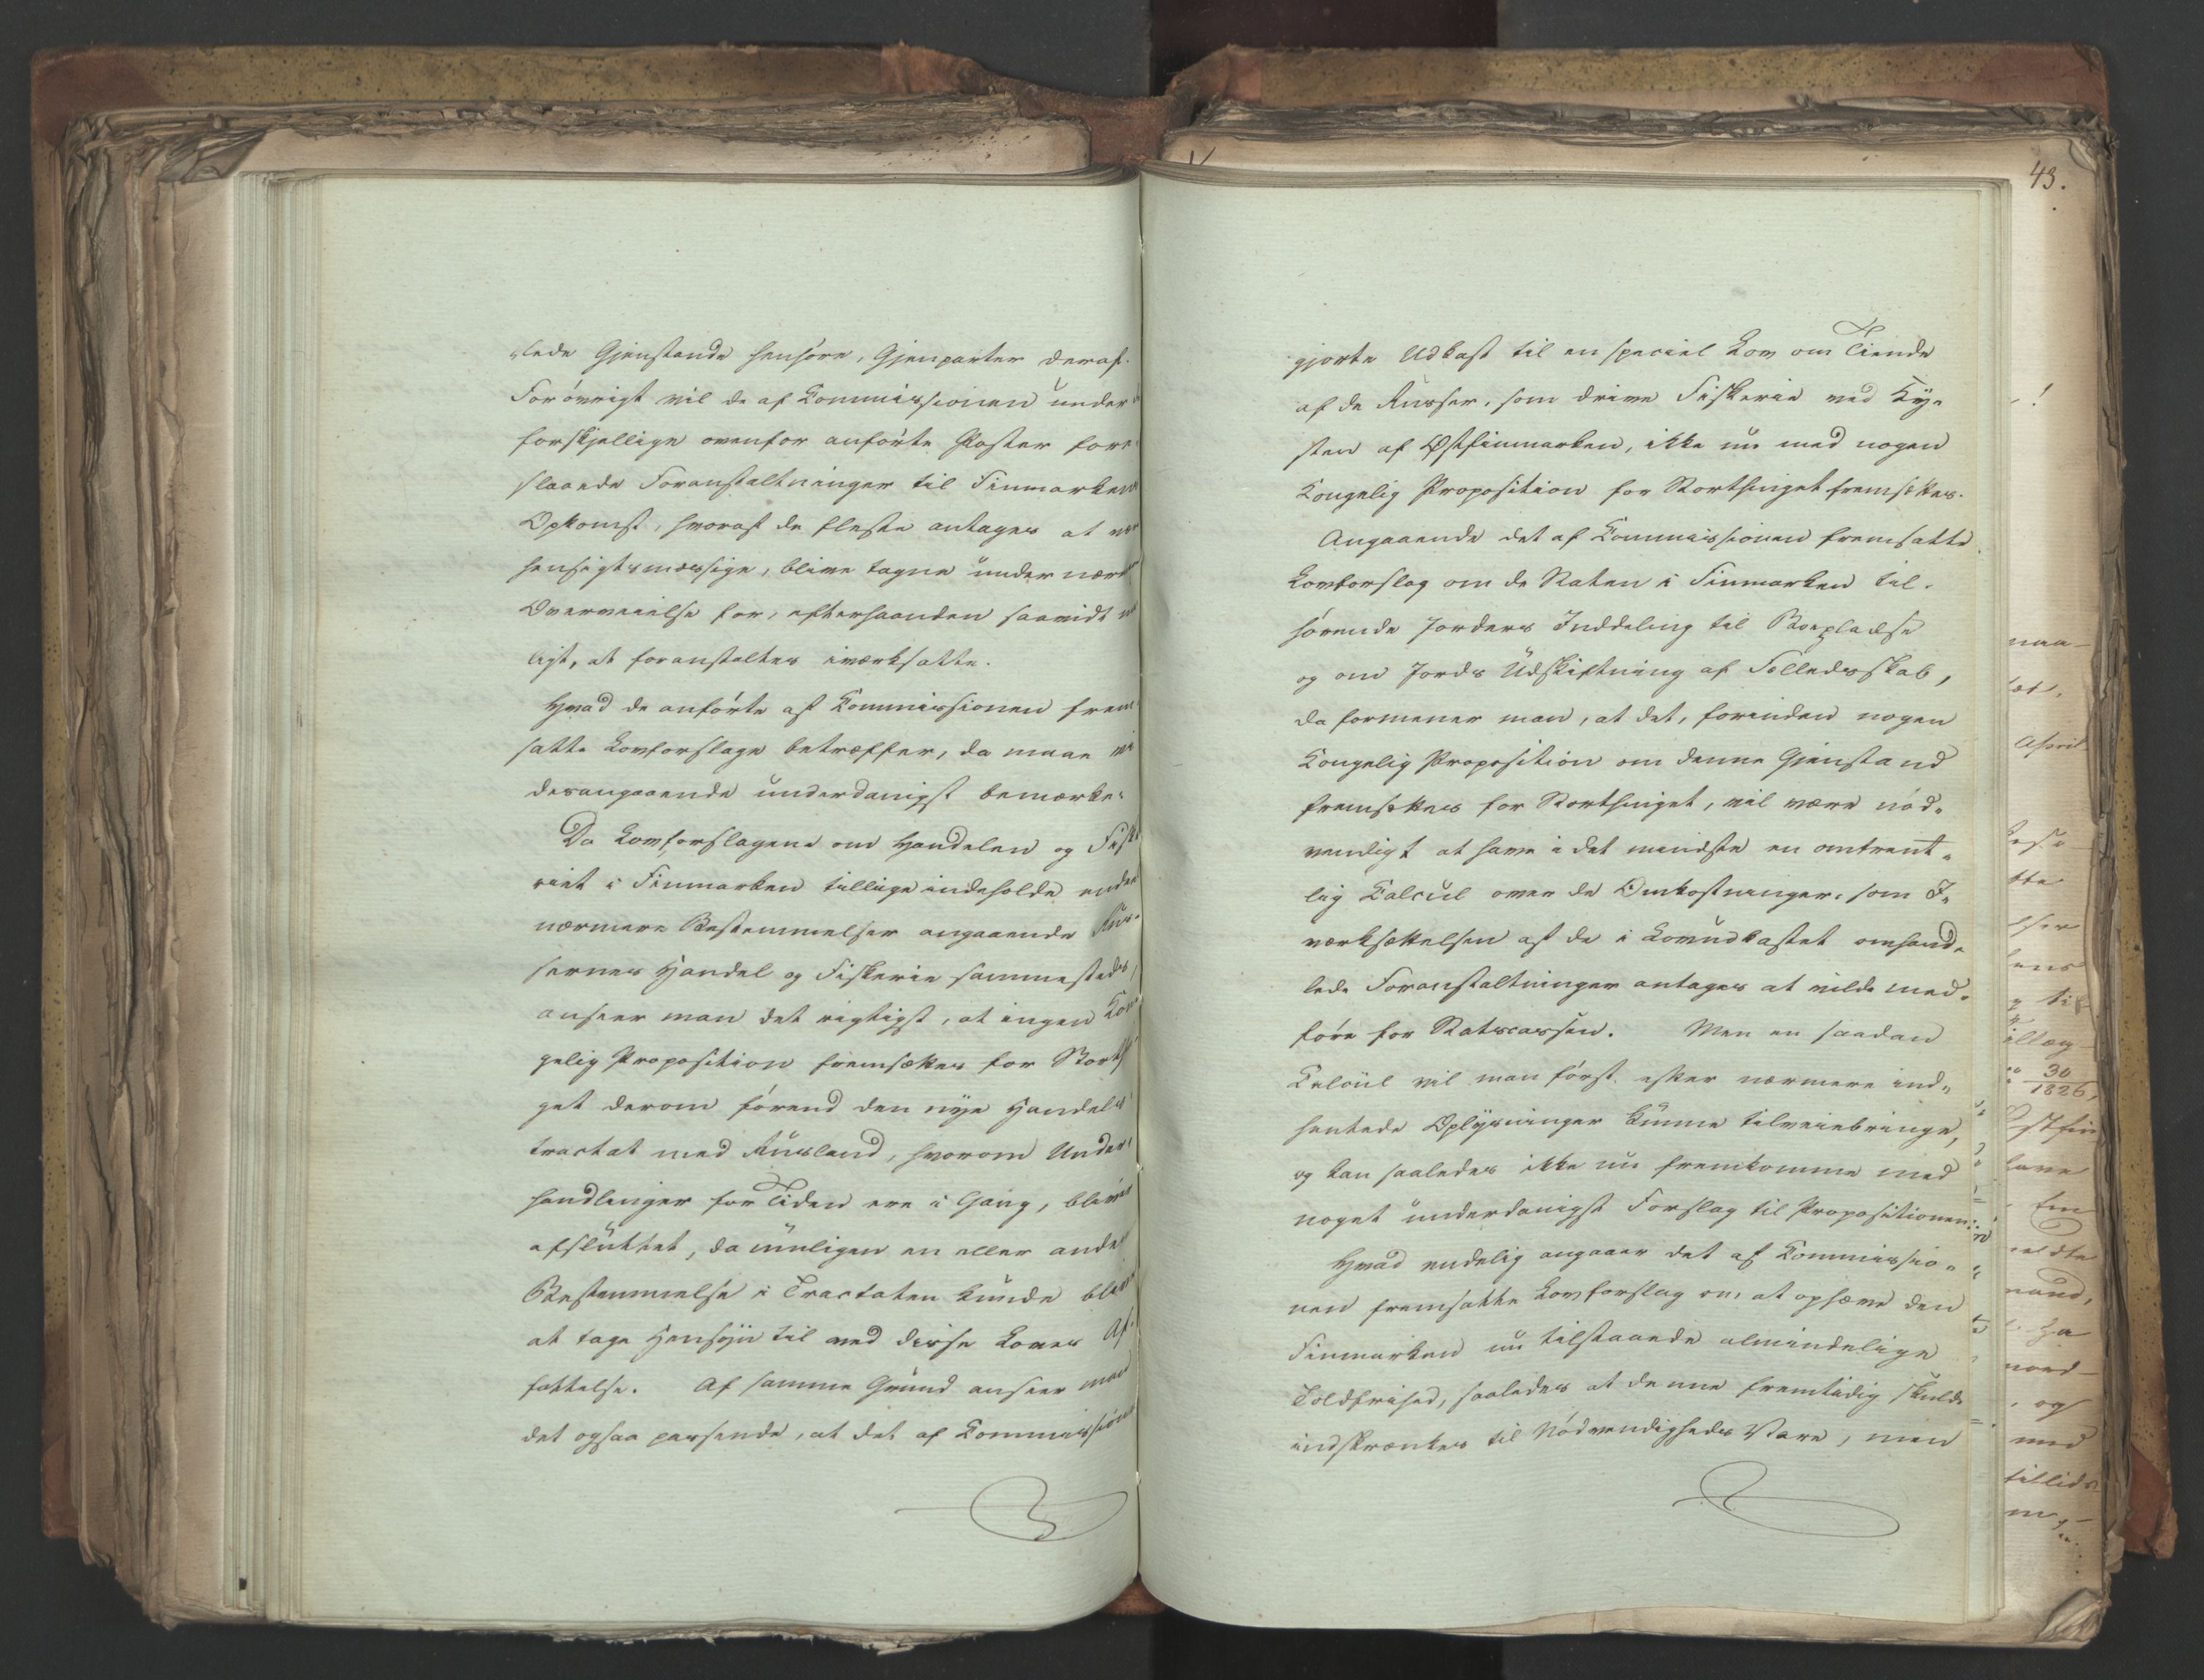 "lede Gjenstande henhöre, Gjenparter deraf.
Forövrigt vil de af Commissionen under
forskjellige ovenfor anförte Poster fore
slaaede Foranstaltninger til Finmarkens
Opkomst, hvoraf de fleste antages at være
hensigtsmæssige, blive tagne under nærmere
Overveielse for, efterhaanden saavidt
ligt, at foranstaltes iværksatte.
Hvad de anförte af Commissionen frem
satte Lovforslage betræffer, da maae vi
desangaaende underdanigst bemærke:
Da Lovforslagene om Handelen og Fiske
riet i Finmarken tillige indeholde endeel
nærmere Bestemmelser angaaende Rus-
sernes Handel og Fiskerie sammesteds,
anseer man det rigtigst, at ingen Kon
gelig Proposition fremsættes for Storthin
get derom förend den nye Handels
tractat med Rusland, hvorom Under
handlinger for Tiden ere i Gang, bliver
afsluttet, da mueligen en eller anden
Bestemmelse i Tractaten kunde blive
at tage Hensyn til ved disse Loves Af-
fattelse. Af samme Grund anseer man
det ogsaa passende, at det af Commissionen
43.
gjorte Udkast til en speciel Lov om Tiende
af de Russer, som drive Fiskerie ved Ky-
sten af Østfinmarken, ikke nu med nogen
Kongelig Proposition for Storthinget fremsættes.
Angaaende det af Commissionen fremsatte
Lovforslag om de Staten i Finmarken til-
hörende Jorders Inddeling til Boepladse
og om Jords Udskiftning af Fælledsskab,
da formener man, at det, forinden nogen
Kongelig Proposition om denne Gjenstand
fremsættes for Storthinget, vil være nöd-
vendigt at have i det mindste en omtrent-
lig Calcul over de Omkostninger, som I-
værksættelsen af de i Lovudkastet omhand-
lede Foranstaltninger antages at ville med-
före for Statscassen. Men en saadan
Calcul vil man först efter nærmere ind-
hentede Oplysninger kunne tilveiebringe,
og kan saaledes ikke nu fremkomme med
noget underdanigst Forslag til Propositionen.
Hvad endelig angaaer det af Commissio-
nen fremsatte Lovforslag om at ophæve den
Finmarken nu tilstaaede almindelige
Toldfrihed, saaledes at denne fremtidig skulde
indskrænkes til Nödvendigheds Vare, men
naa-
April
tte
ens
til
30
1826,
Østfin
have
nord-
og
med
tillids